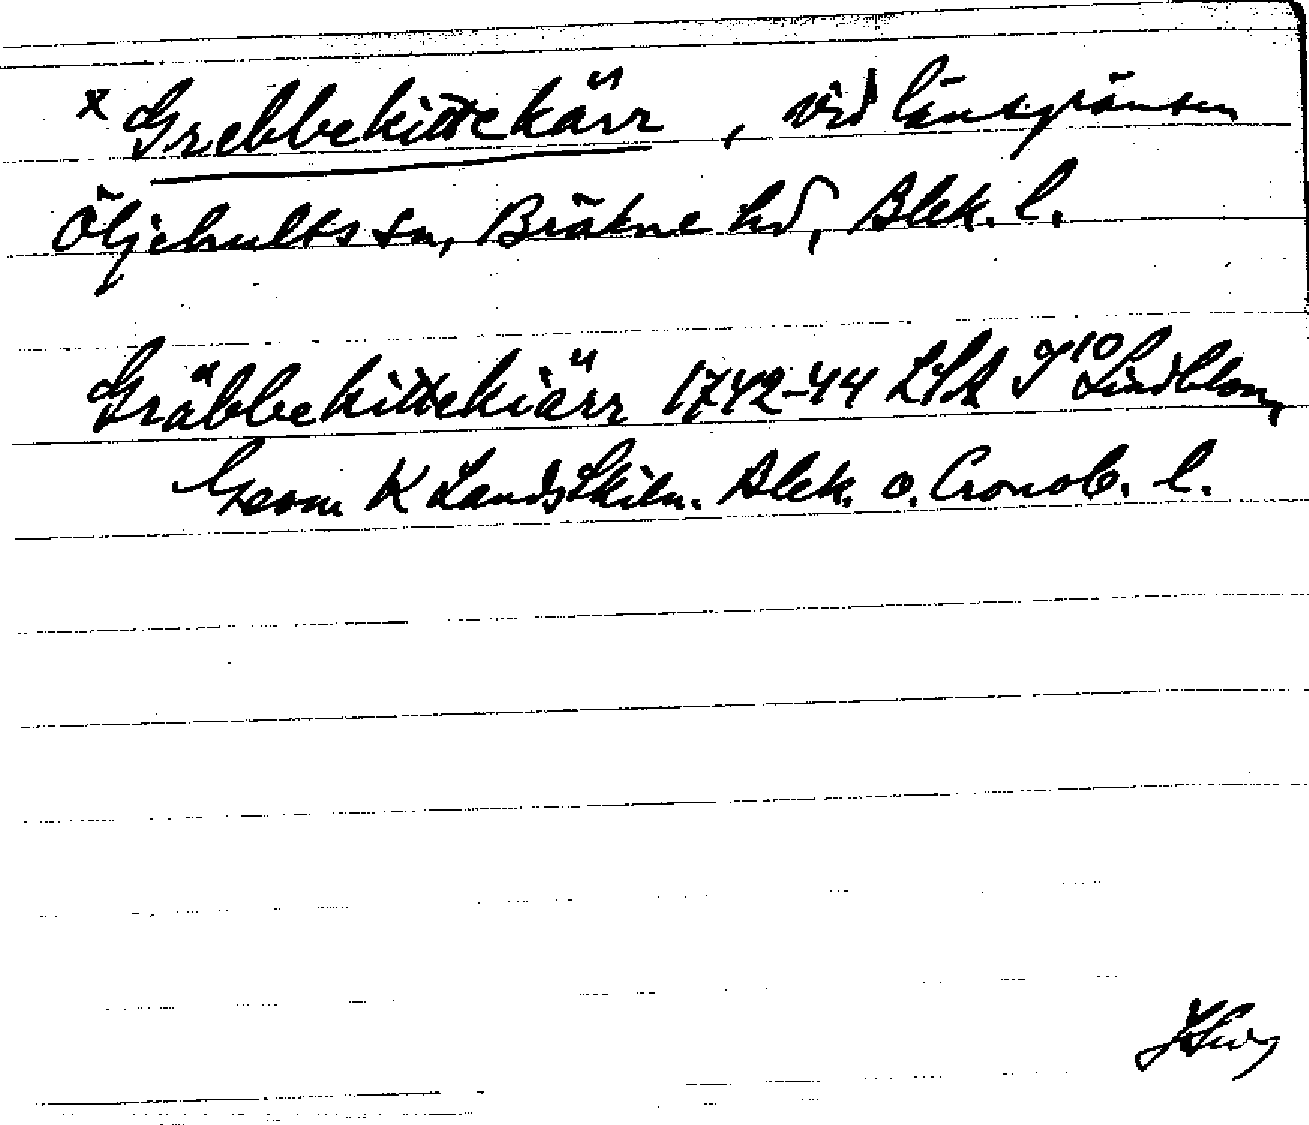 x Grebbekittekärr, vid länsgränsen
Öljehults sn, Bräkne hd, Blek. l.
Gräbbekittekiärr 1742-44 LSA Lindblom,
Geom K Landsskiln. Blek. o. Cronob. l.